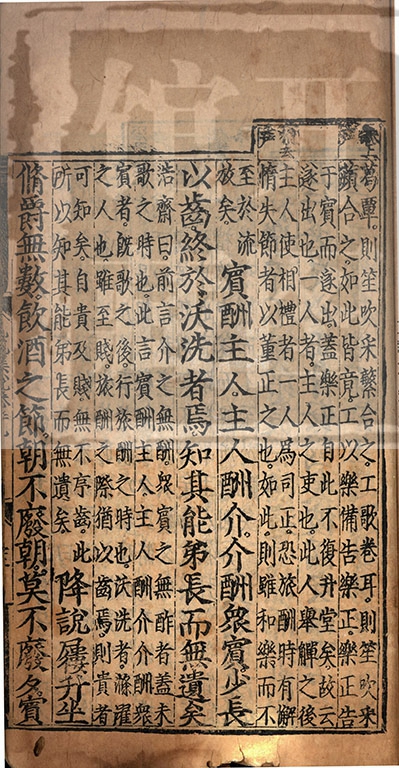 葛覃。則笙吹采蘩合之。工歌卷耳。則笙吹采
蘋合之。如此皆竟。工以樂備告樂正。樂正告
于賓而遂出。蓋樂正自此不復升堂矣。故云
遂出也。一人者。主人之吏也。此人舉觶之後
主人使相禮者一人為司正。恐旅酬時有懈
惰失節者。以董正之也。如此。則雖和樂而不
至於流
放矣。
賓酬主人。主人酬介。介酬衆賓。少長
以齒。終於沃洗者焉。知其能弟長而無遺矣
浩齋曰。前言介之無酬。衆賓之無酢者。蓋未
歌之時也。此言賓酬主人。主人酬介。介酬衆
賓者。旣歌之後。行旅酬之時也。沃洗者。滌濯
之人也。雖至賤。旅酬之際。猶以齒焉。則貴者
可知矣。自貴及賤。無不序齒。此
所以知其能弟長而無遺矣
降說屨升坐
脩爵無數。飲酒之節。朝不廢朝。莫不廢夕。賓